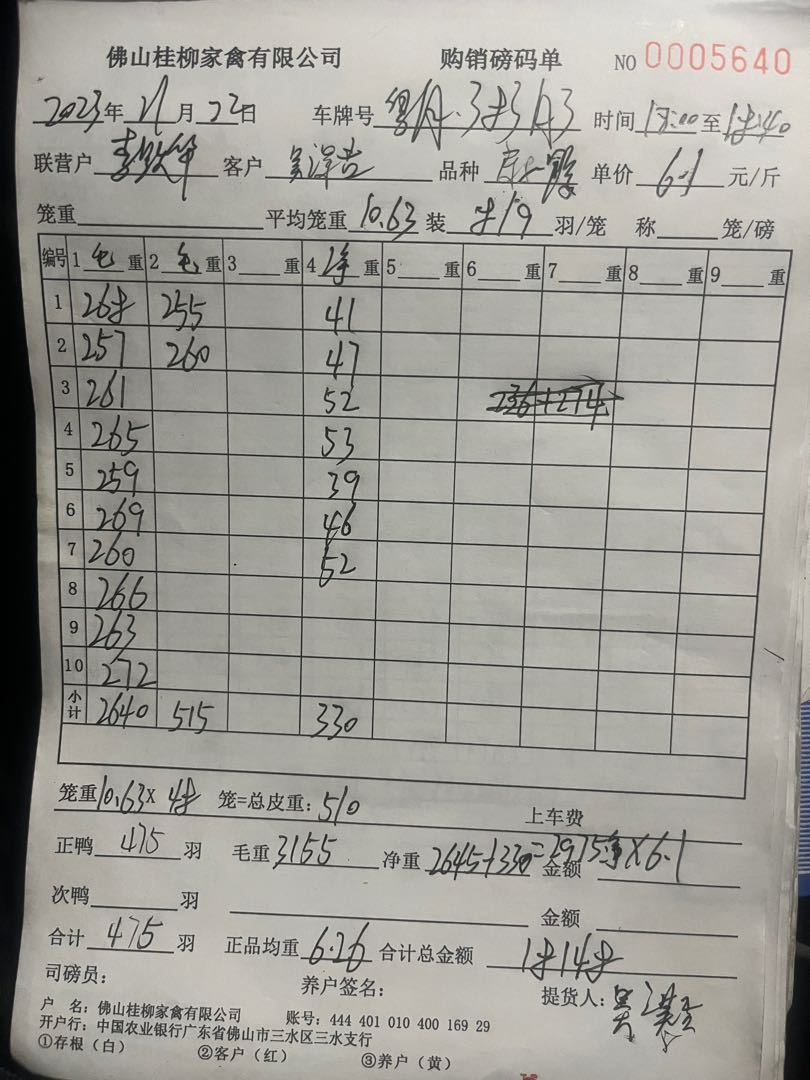 佛山桂柳家禽有限公司 购销磅码单 NO 0005640
2023年 11月 22日 车牌号 时间 至 18:40
联营户 客户 吴泽 品种 单价 6.1 元/斤
笼重 平均笼重 10.63 装 8/9 羽/笼 称 笼/磅
编号 1 毛 重 2 毛 重 3 重 4 净 重 5 重 6 重 7 重 8 重 9 重
1 268 255 41
2 257 260 47
3 261 52 236+274
4 265 53
5 259 39
6 269 46
7 260 52
8 266
9 263
10 272
小计 2640 515 330
笼重 10.63 × 48 笼=总皮重: 510 上车费
正鸭 475 羽 毛重 3155 净重 2645+330=2975净×6.1 金额
次鸭 羽 金额
合计 475 羽 正品均重 6.26 合计总金额 18148
司磅员: 养户签名: 提货人: 吴
户 名: 佛山桂柳家禽有限公司 账号: 444 401 010 400 169 29
开户行: 中国农业银行广东省佛山市三水区三水支行
①存根（白） ②客户（红） ③养户（黄）